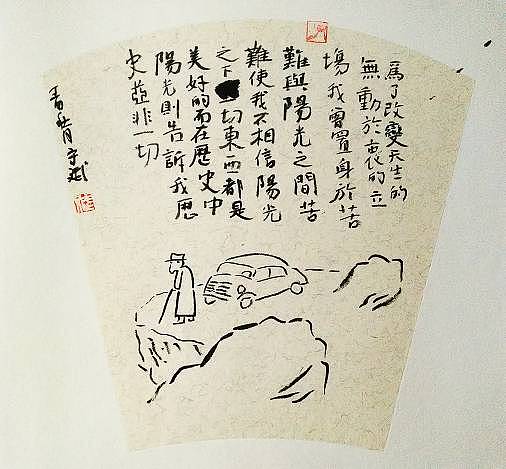 爲了改變天生的
無動於衷的立
場我曾置身於苦
難與陽光之間苦
難使我不相信陽光
之下一切東西都是
美好的而在歷史中
陽光則告訴我歷
史並非一切